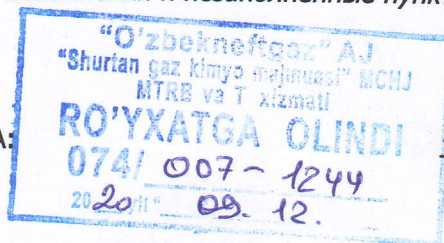 незаполненные пунк
"O'zbekneftgaz" AJ
"Shurtan gaz kimyo majmuasi" MCHJ
MTRB va T xizmati
RO'YXATGA OLINDI
074/ 007-1244
2020 yil " 09.12.